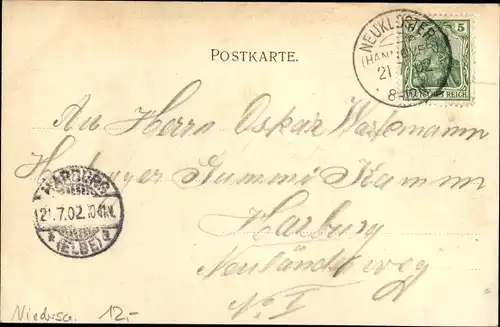 POSTKARTE.
NEUKLOSTER
(HANNOVER)
21
02
8-
5
DEUTSCHES REICH
An Herrn Oskar
Harburger Gummi Kamm
Harburg
Neuländerweg
No I
HARBURG
21.7.02.10-11V.
* (ELBE) a
Niedersa. 12.-